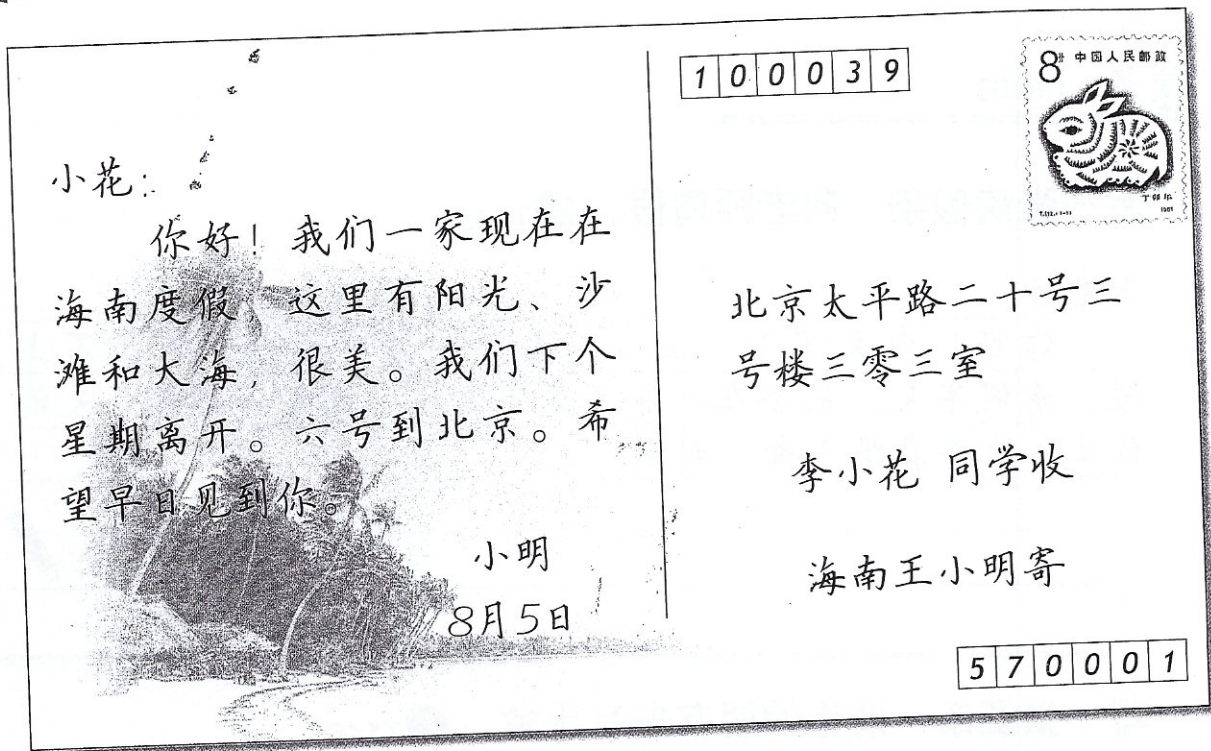 小花：
你好！我们一家现在在
海南度假，这里有阳光、沙
滩和大海，很美。我们下个
星期离开。六号到北京。希
望早日见到你。
小明
8月5日
100039
8分 中国人民邮政
丁卯年
1987
北京太平路二十号三
号楼三零三室
李小花 同学收
海南王小明寄
570001